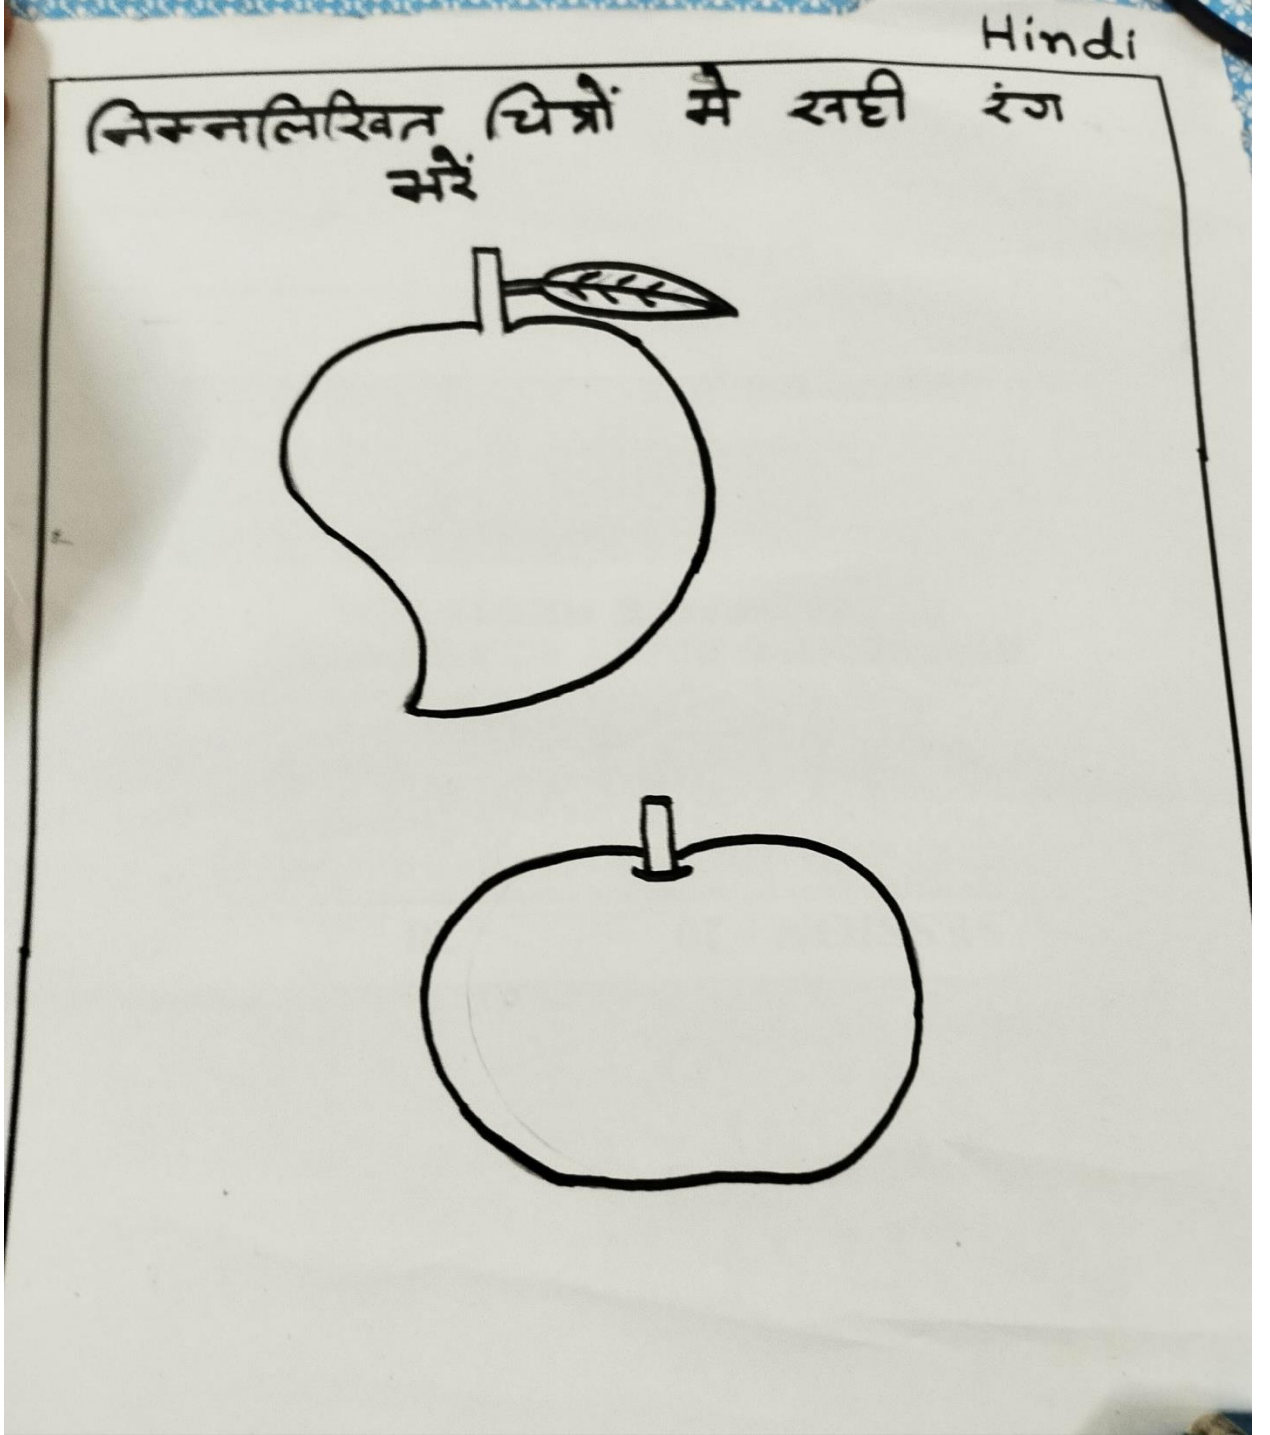 Hindi
निम्नलिखित चित्रों मे सही रंग
भरें